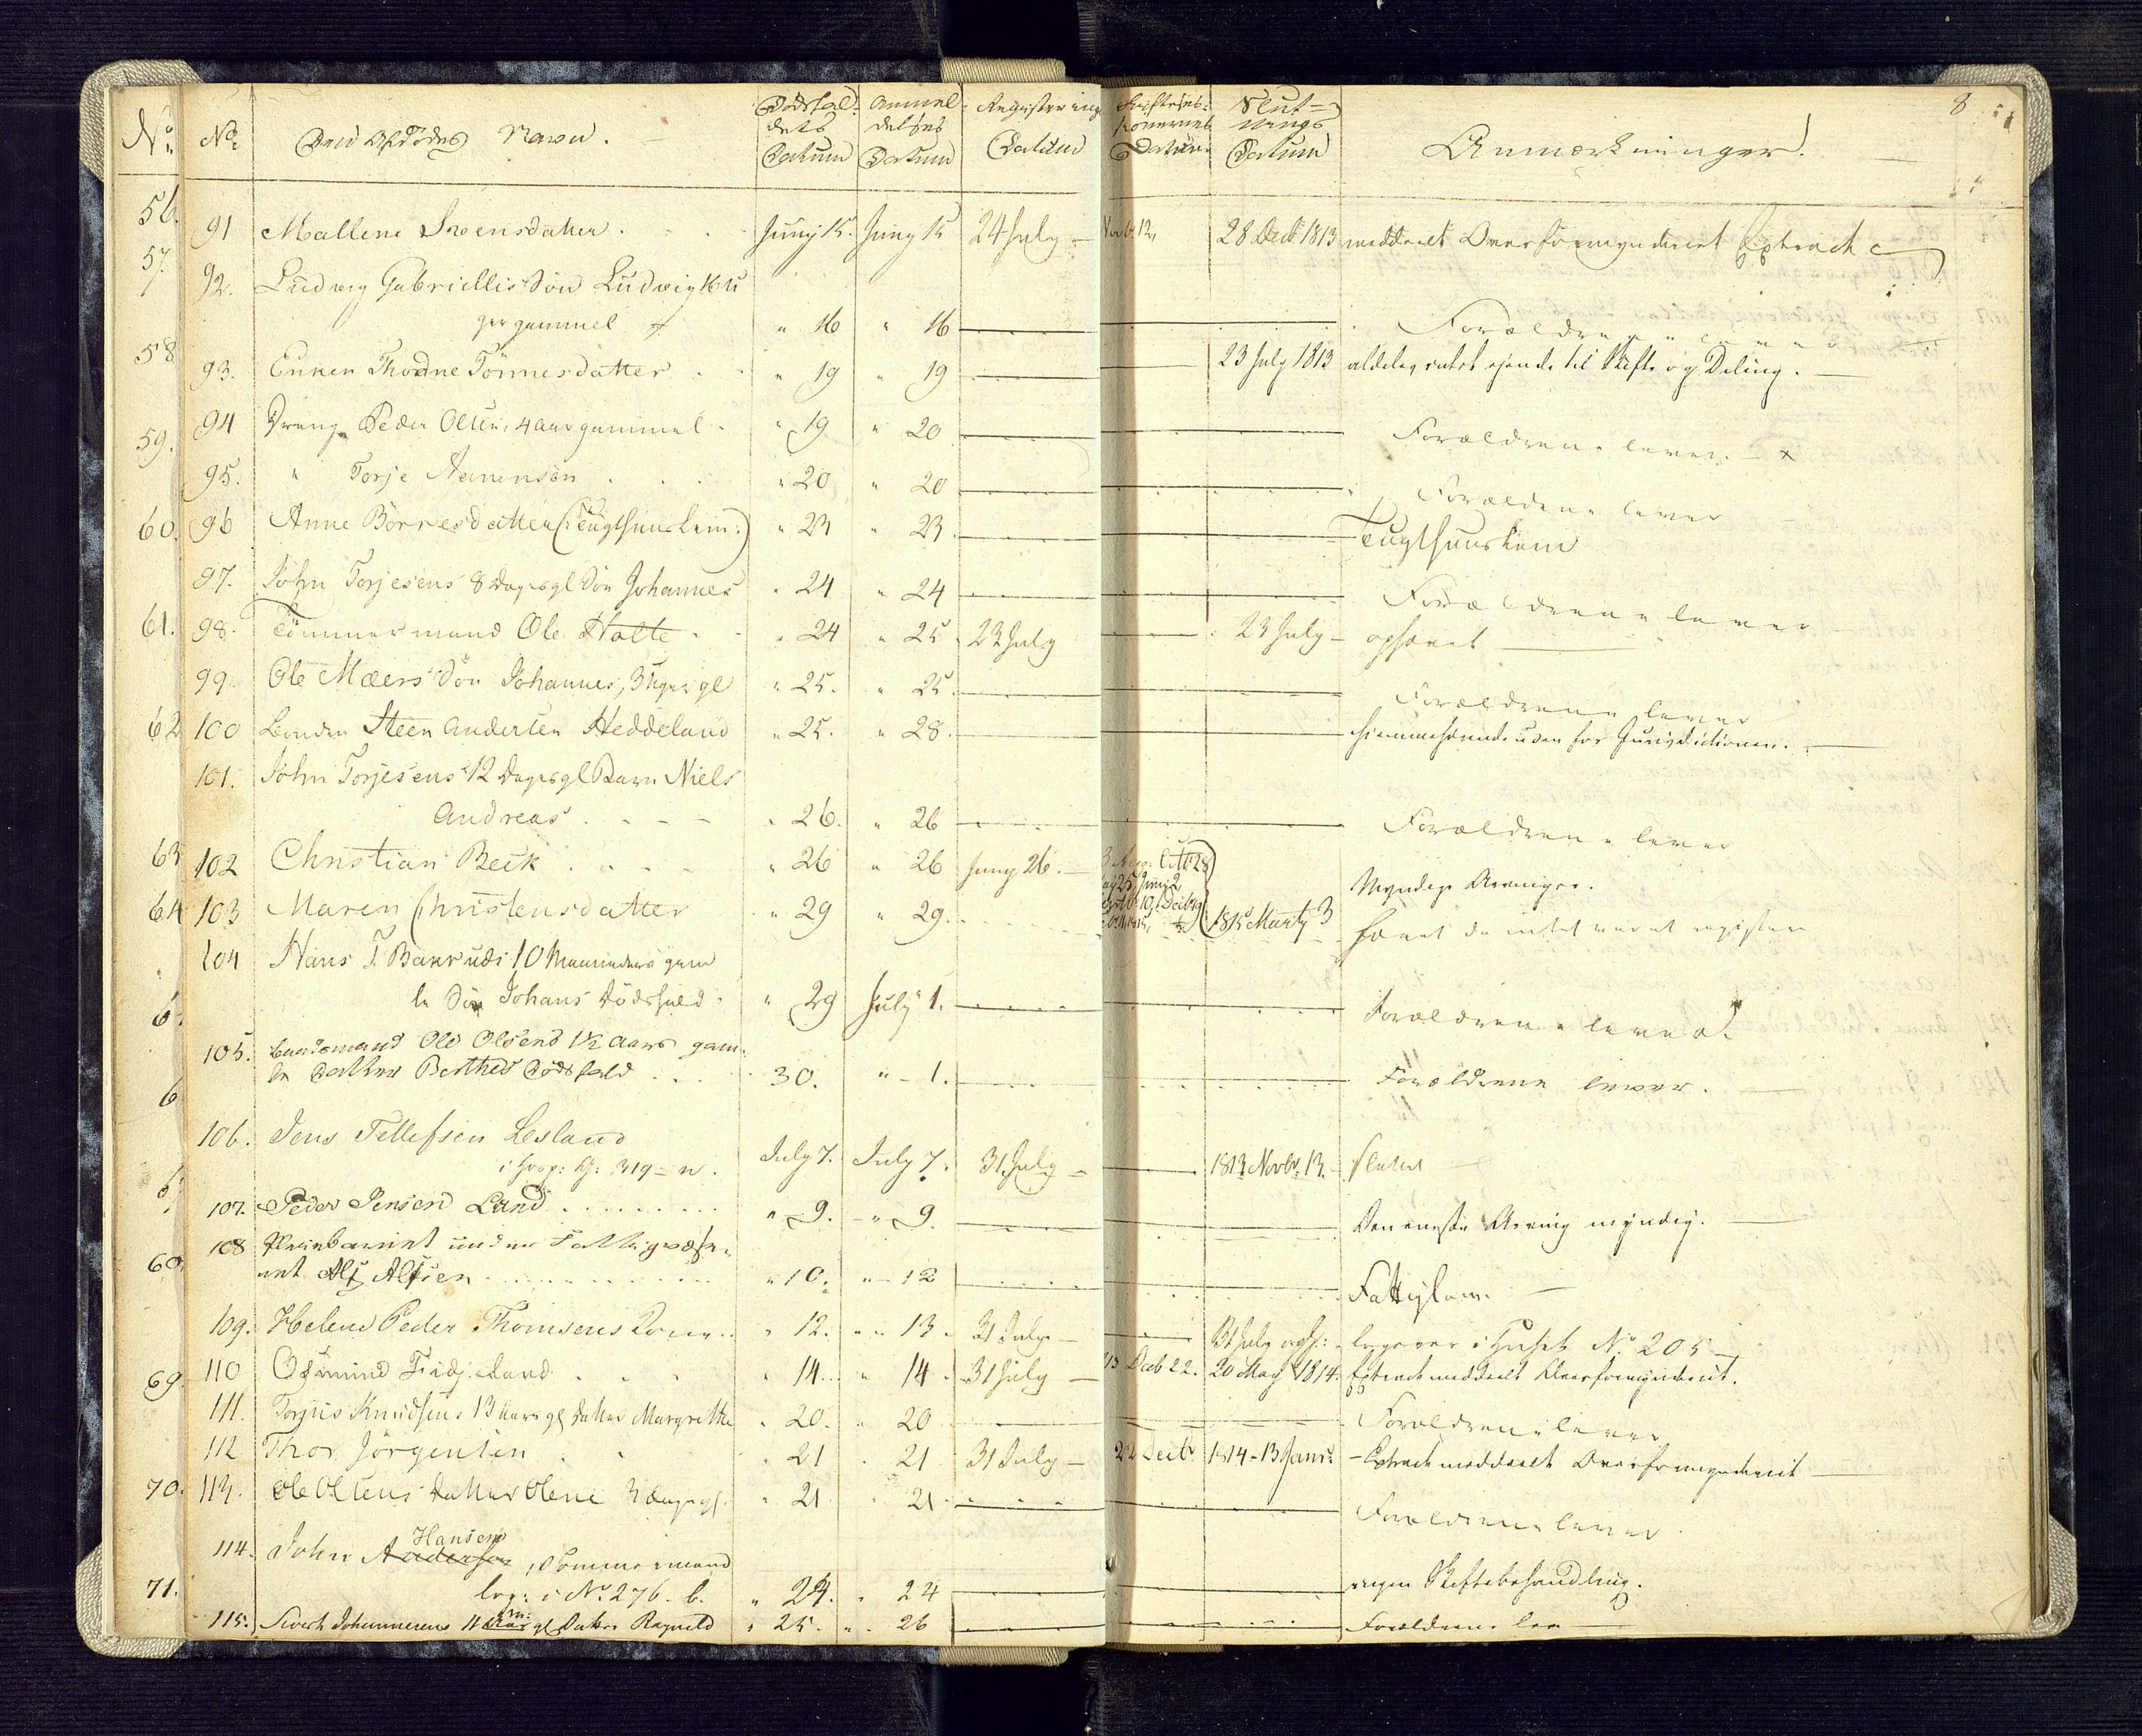 8
No No Den Afdødes Navn. Dødsfal-dets Datum Anmel-delses Datum Registerings Datum Datum Slut-nings Datum Anmærkninger.
56. 91 Mallene Svensdatter Juny 15. Juny 15 24 July 12, 28 Decb. 1813 meddeelt Overformynderiet Extract
57. 92. Ludvig Gabriellis Søn Ludvig 16 U
ger gammel " 16 " 16 Forældrene lever
58 93. Enken Thorne Tönnesdatter " 19 " 19 23 July 1813 aldeles intet ejende til Skifte og Deling.
59. 94 Dreng Peder Olsen, 4 aar gammel " 19 " 20 Forældrene lever
95. " Torje Aanensön " 20 " 20 Forældrene lever
60. 96 Anne Börresdatter (Tugthuuslem:) " 23 " 23. Tugthuuslem
97. John Torjesens 8 Dages gl Søn Johannes " 24 " 24 Forældrene lever
61. 98. Tømmermand Ole Holte " 24 " 25 23 July 23 July ophævet
99. Ole Mæers Søn Johannes, 3 Uger gl " 25. " 25. Forældrene lever
62 100 Bonden Steen Andersen Heddeland " 25. " 28. hiemmehørende uden for Jurisdictionen.
101. John Torjesens 12 Dages gl Barn Niels
Andreas " 26. " 26 Forældrene lever
63 102 Christian Beck " 26 " 26 Juny 26. Myndige Arvinger.
64 103 Maren Christensdatter " 29 " 29. 1815 Marty 3 hævet da intet var at registere
104 Hans T. Barruds 10 Maaneders gam
le Søn Johans Dödsfald " 29 July 1. Forældrene lever
6 105. Landsmand Ole Olsens 1½ Aars gam-
le Datter Berthes Dødsfald 30. " 1. Forældrene lever.
6 106. Jens Tellefsen Lesland
319 July 7. July 7. 31 July 1813 Novbr. 13. sluttet
6 107. Peder Jensen Land " 9. " 9. Den eneste Arving myndig.
60 108 Pleiebarnet under Fattigvæse-
net Alf Alfsen " 10. " 12 Fattiglem.
109. Helene Peder Thomsens Kone " 12. " 13. 31 July 31 July logerer i Huset No 205
69. 110 Osmund Fidjeland " 14. " 14 31 July 13 Decb 22. 20 May 1814. Extract meddeelt Overformynderiet.
111. Torjus Knudsens 13 aars gl Datter Margrethe " 20. " 20 Forældrene lever
112 Thor Jörgensen " 21 " 21 31 July 22 Decbr 1814 - 13 Janr. Extract meddeelt Overformynderiet
70. 113. Ole Olsens Datter Olene 3 dage gl. " 21 " 21 Forældrene lever
Hansen
114. John Andersen, Tømmermand
71. log: i No 276. b. " 24. " 24 ingen Skiftebehandling.
115. Sivert Johannesens 11 gl Datter Ragnild " 25. " 26 Forældrene lev